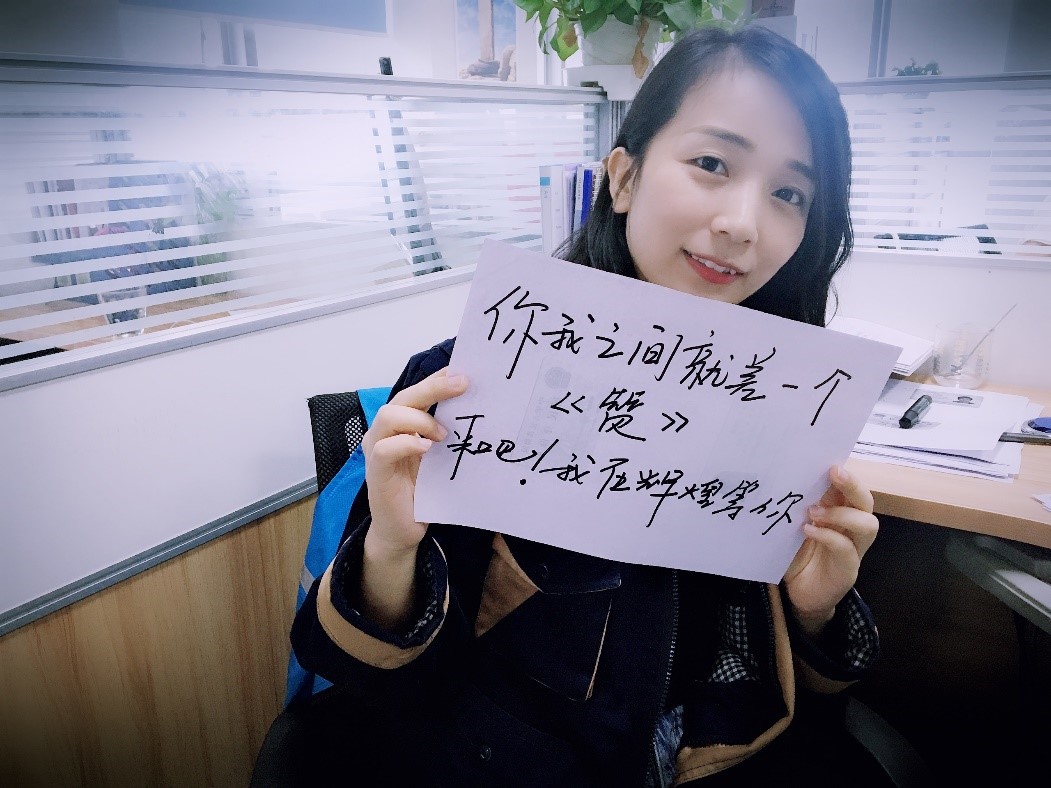 你我之间就差一个
《赞》
来吧！我在辉煌等你